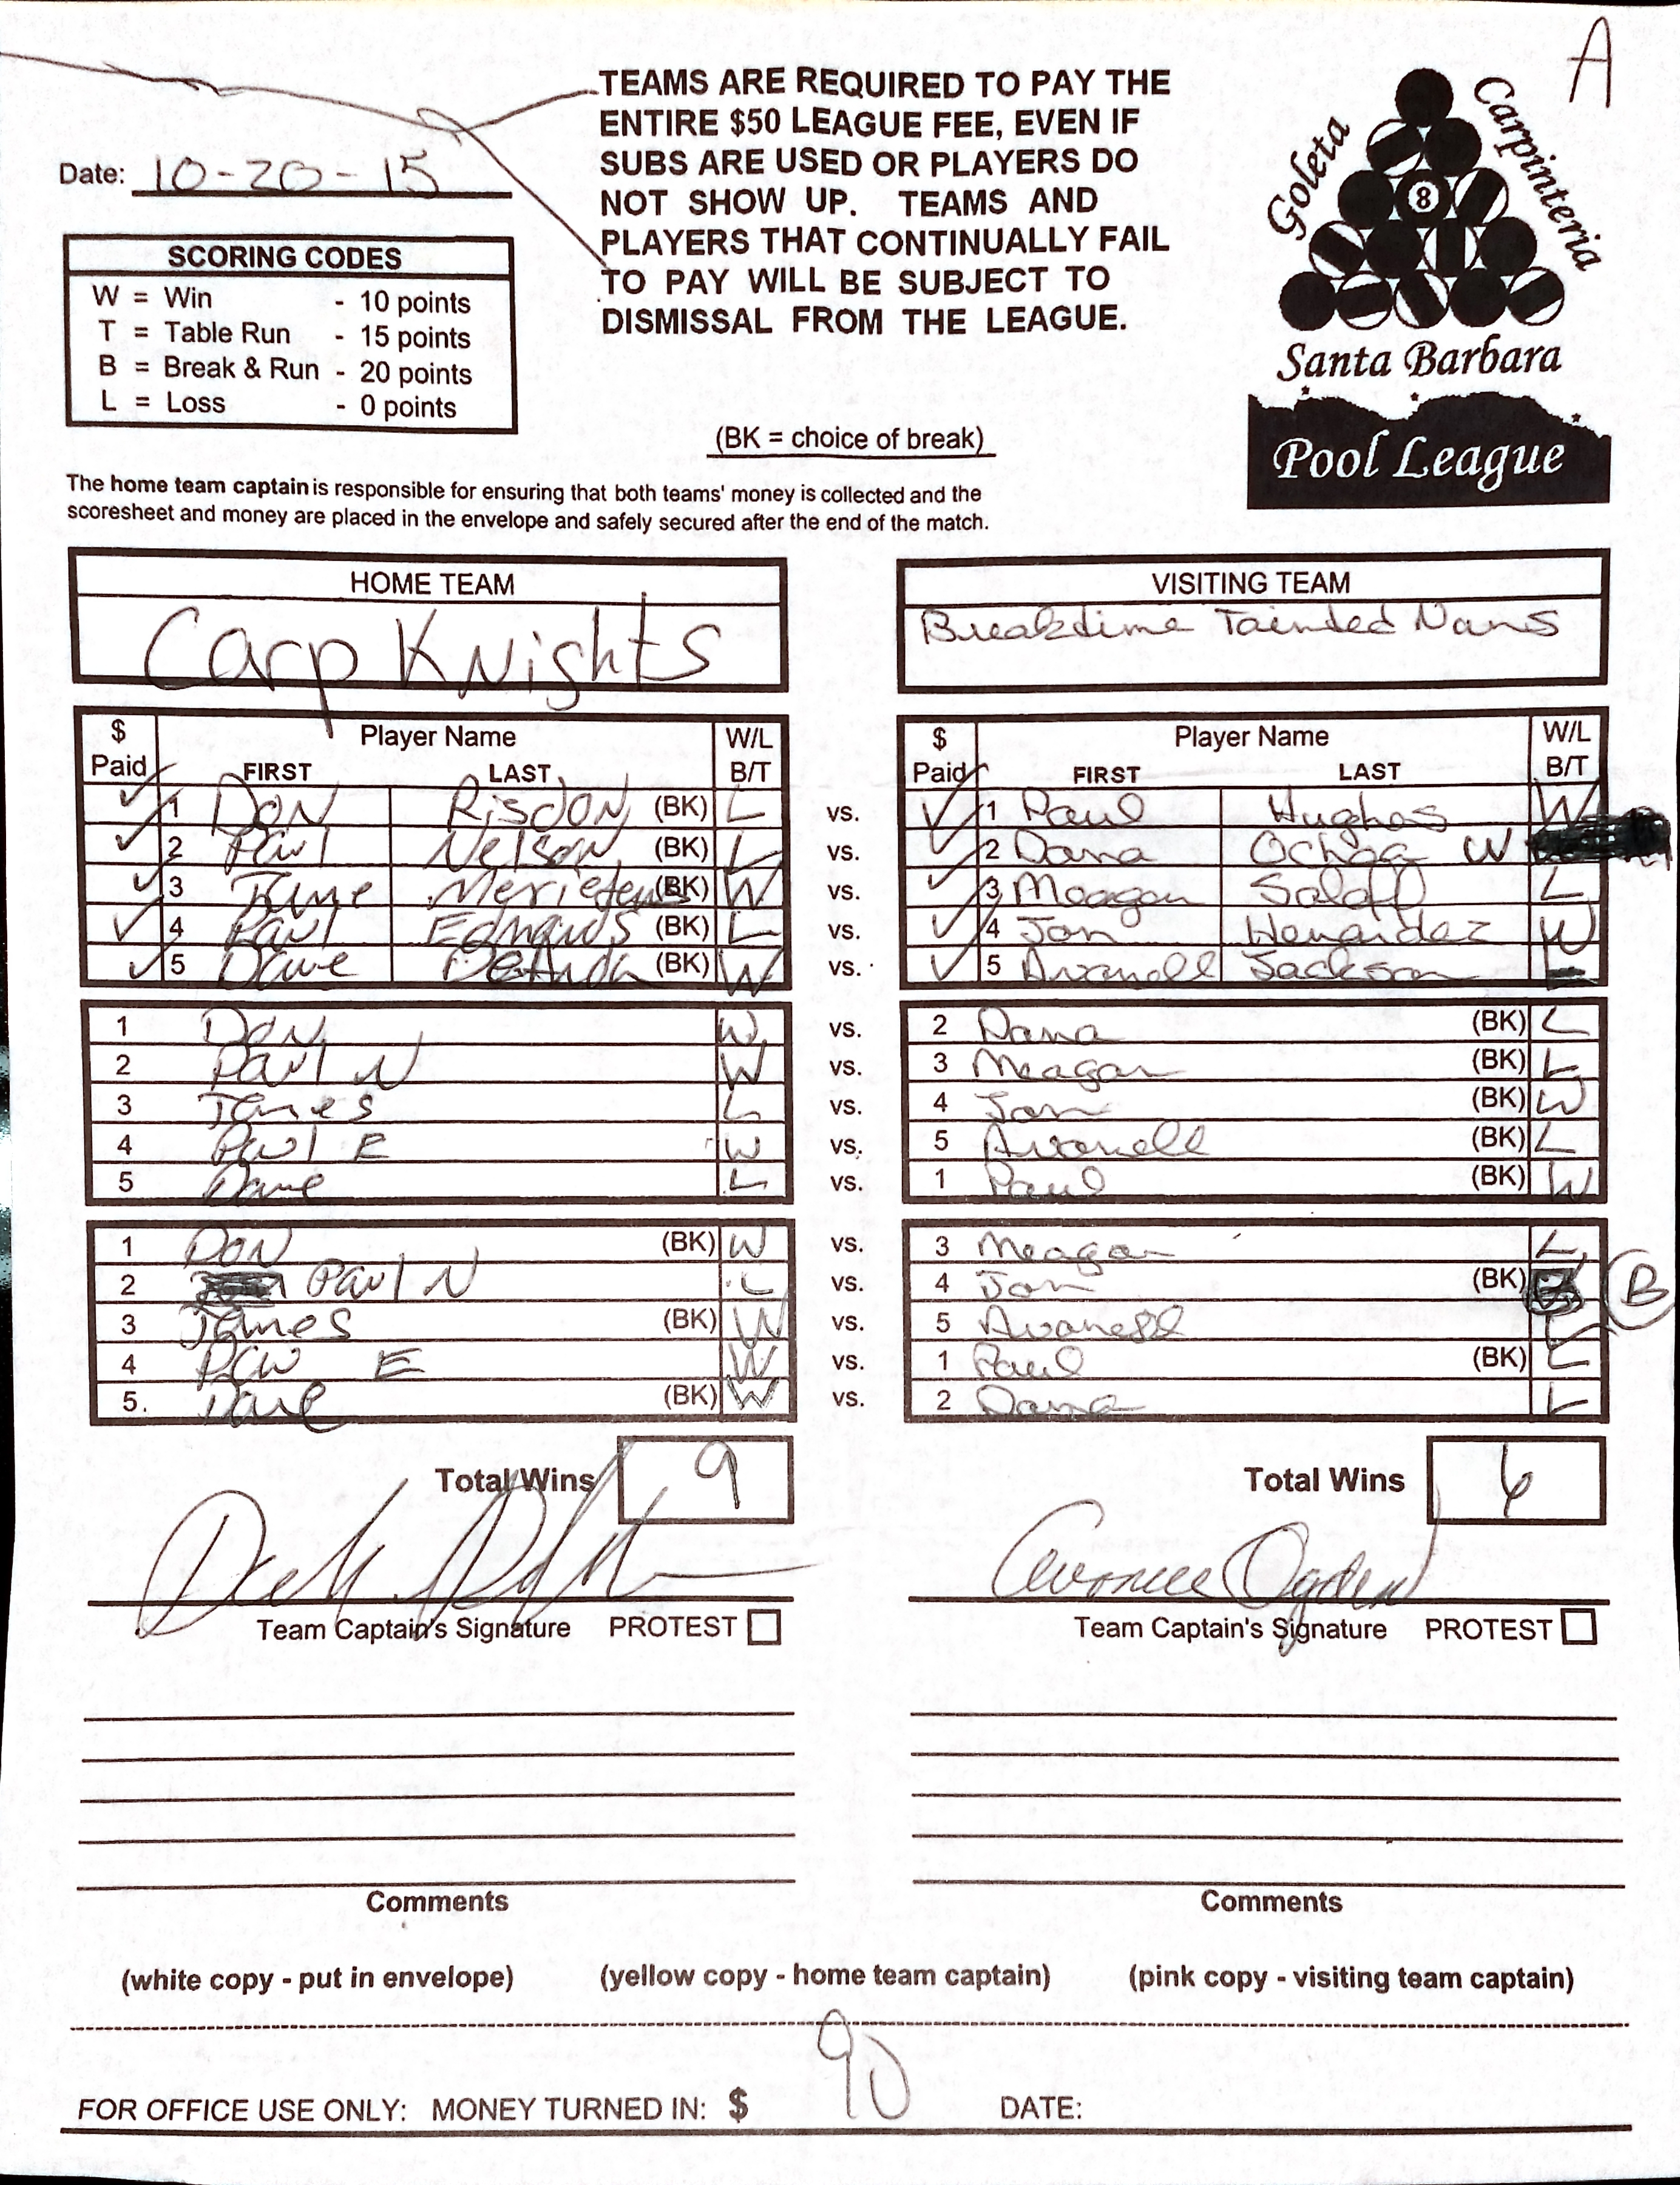 A
TEAMS ARE REQUIRED TO PAY THE
ENTIRE $50 LEAGUE FEE, EVEN IF
SUBS ARE USED OR PLAYERS DO
NOT SHOW UP. TEAMS AND
PLAYERS THAT CONTINUALLY FAIL
TO PAY WILL BE SUBJECT TO
DISMISSAL FROM THE LEAGUE.
Date: 10-20-15
SCORING CODES
W = Win - 10 points
T = Table Run - 15 points
B = Break & Run - 20 points
L = Loss - 0 points
(BK = choice of break)
Goleta
Carpinteria
8
Santa Barbara
Pool League
The home team captain is responsible for ensuring that both teams' money is collected and the
scoresheet and money are placed in the envelope and safely secured after the end of the match.
HOME TEAM VISITING TEAM
Carp Knights Breaktime Tainted Nans
$ Paid Player Name W/L B/T $ Paid Player Name W/L B/T
FIRST LAST FIRST LAST
1 Don Risdon (BK) L vs. 1 Paul Hughes W
2 Paul Nelson (BK) L vs. 2 Dana Ochoa W
3 (BK) W vs. 3 Meagan L
4 Paul Edmunds (BK) L vs. 4 Jon Henandez W
5 Dave DeAnda (BK) W vs. 5 Avanell Jackson L
1 Don W vs. 2 Dana (BK) L
2 Paul N W vs. 3 Meagan (BK) L
3 James L vs. 4 Jon (BK) W
4 Paul E W vs. 5 Avanell (BK) L
5 Dave L vs. 1 Paul (BK) W
1 Don (BK) W vs. 3 Meagan L
2 Paul N L vs. 4 Jon (BK) B
3 James (BK) W vs. 5 Avanell L
4 Paul E W vs. 1 Paul (BK) L
5. Dave (BK) W vs. 2 Dana L
Total Wins 9 Total Wins 6
Ogden
Team Captain's Signature PROTEST Team Captain's Signature PROTEST
Comments Comments
(white copy - put in envelope) (yellow copy - home team captain) (pink copy - visiting team captain)
FOR OFFICE USE ONLY: MONEY TURNED IN: $ 90 DATE: